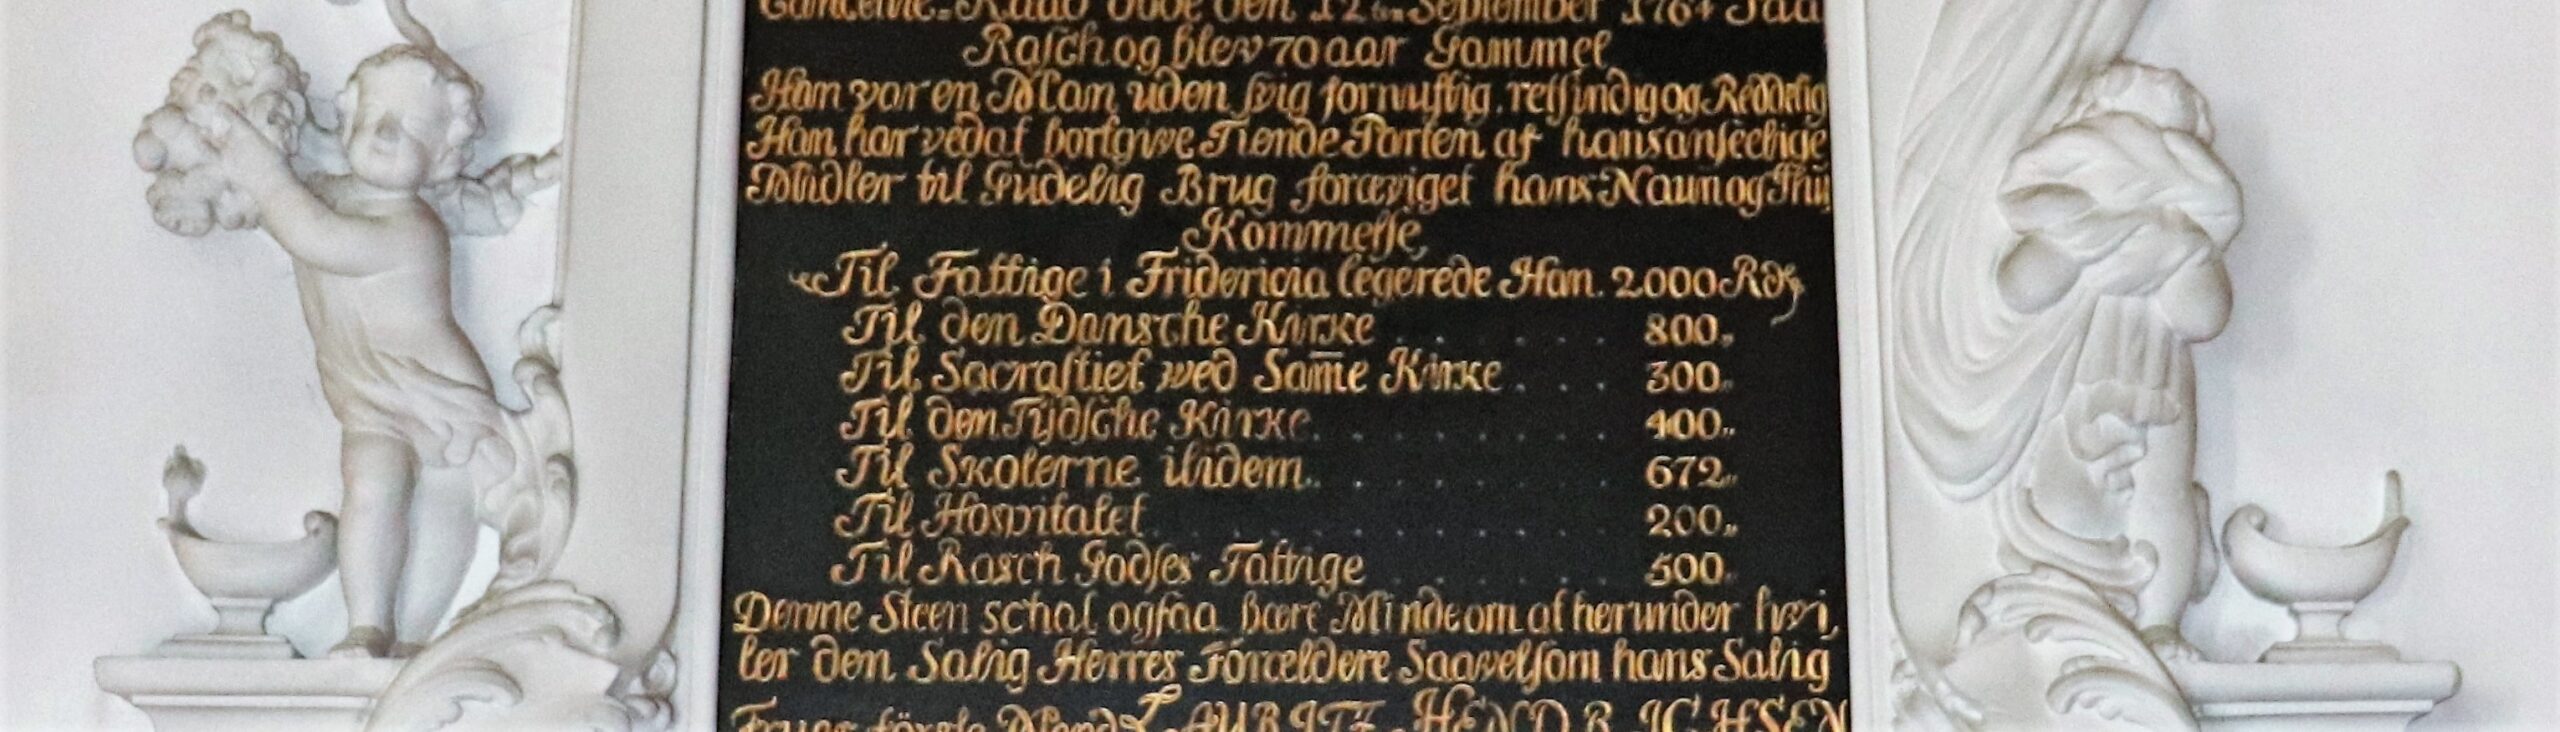 Cancellie-Raad døde den 12ten September 1764 Paa
Rasch og blev 70 aar Gammel
Han var en Man uden svig fornuftig, retsindig og Reddelig
Han har ved at bortgive Tiende Parten af hans anseelige
Midler til Gudelig Brug foræviget hans Naun og Ihu
Kommelse,
Til Fattige i Fridericia legerede Han. 2000 Rdr
Til den Dansche Kirke . . . . . . 800„
Til Sacrastiet wed Sam̄e Kirke . . . 300„
Til den Tydsche Kirke . . . . . . . 400„
Til Skolerne ibidem . . . . . . . 672„
Til Hospitalet . . . . . . . . . . 200„
Til Rasch Godses Fattige . . . . . . 500
Denne Steen schal ogsaa bære Minde om at herunder hvi,
ler den Salig Herres Forældere Saavelsom hans Salig
Frues förste Mand LAURITZ HENDRICHSEN